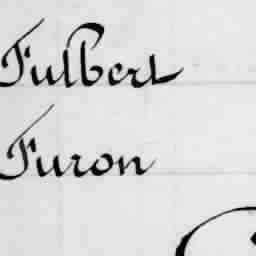 Fulbert
Furon